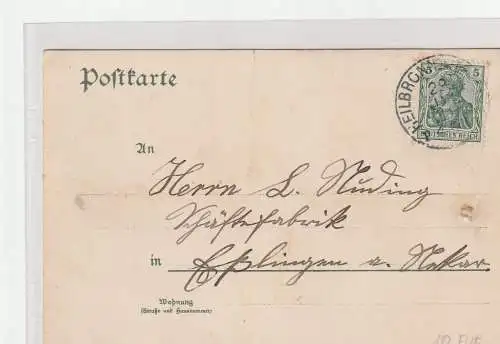 Postkarte
HEILBRONN
5 5
DEUTSCHES REICH
An
Herrn L. Nuding
Schäftefabrik
in Eßlingen a. Nekar
Wohnung
(Straße und Hausnummer)